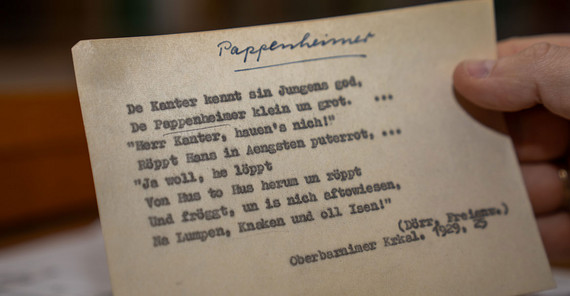 Pappenheimer
De Kanter kennt sin Jungens god,
De Pappenheimer klein un grot. ...
"Herr Kanter, hauen's nich!"
Röppt Hans in Aengsten puterrot, ...
"Ja woll, he löppt
Von Hus to Hus herum un röppt
Und fröggt, un is nich aftowiesen,
Na Lumpen, Knaken und oll Isen!"
(Dörr, Freienw.)
Oberbarnimer Krkal. 1929, 25